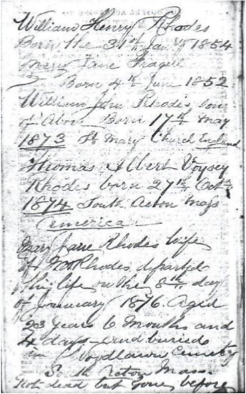 William Henry Rhodes
Born the 31st Jany 1854
Mary Jane
Born 4th June 1852
William John Rhodes, son
of Abov Born 17th May
1873 St Mary Church England
Thomas Albert Voysey
Rhodes born 27th Octr
1874 South Acton Mass
America
Mary Jane Rhodes wife
of W Rhodes departed
this life on the 8th day
of January 1876. Aged
23 years 6 months and
4 days and buried
in Woodlawn Cemetery
S. Acton Mass.
Not dead but gone before